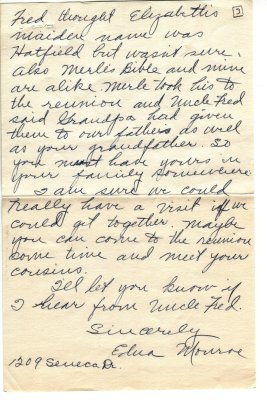 3
Fred thought Elizabeth's
maiden name was
Hatfield but wasn't sure.
Also Merle's Bible and mine
are alike. Merle took his to
the reunion and Uncle Fred
said Grandpa had given
them to our fathers as well
as your grandfather. So
you must have yours in
your family somewhere.
I am sure we could
really have a visit if we
could get together. Maybe
you can come to the reunion
some time and meet your
cousins.
I'll let you know if
I hear from Uncle Fred.
Sincerely
Edna Monroe
1209 Seneca Dr.